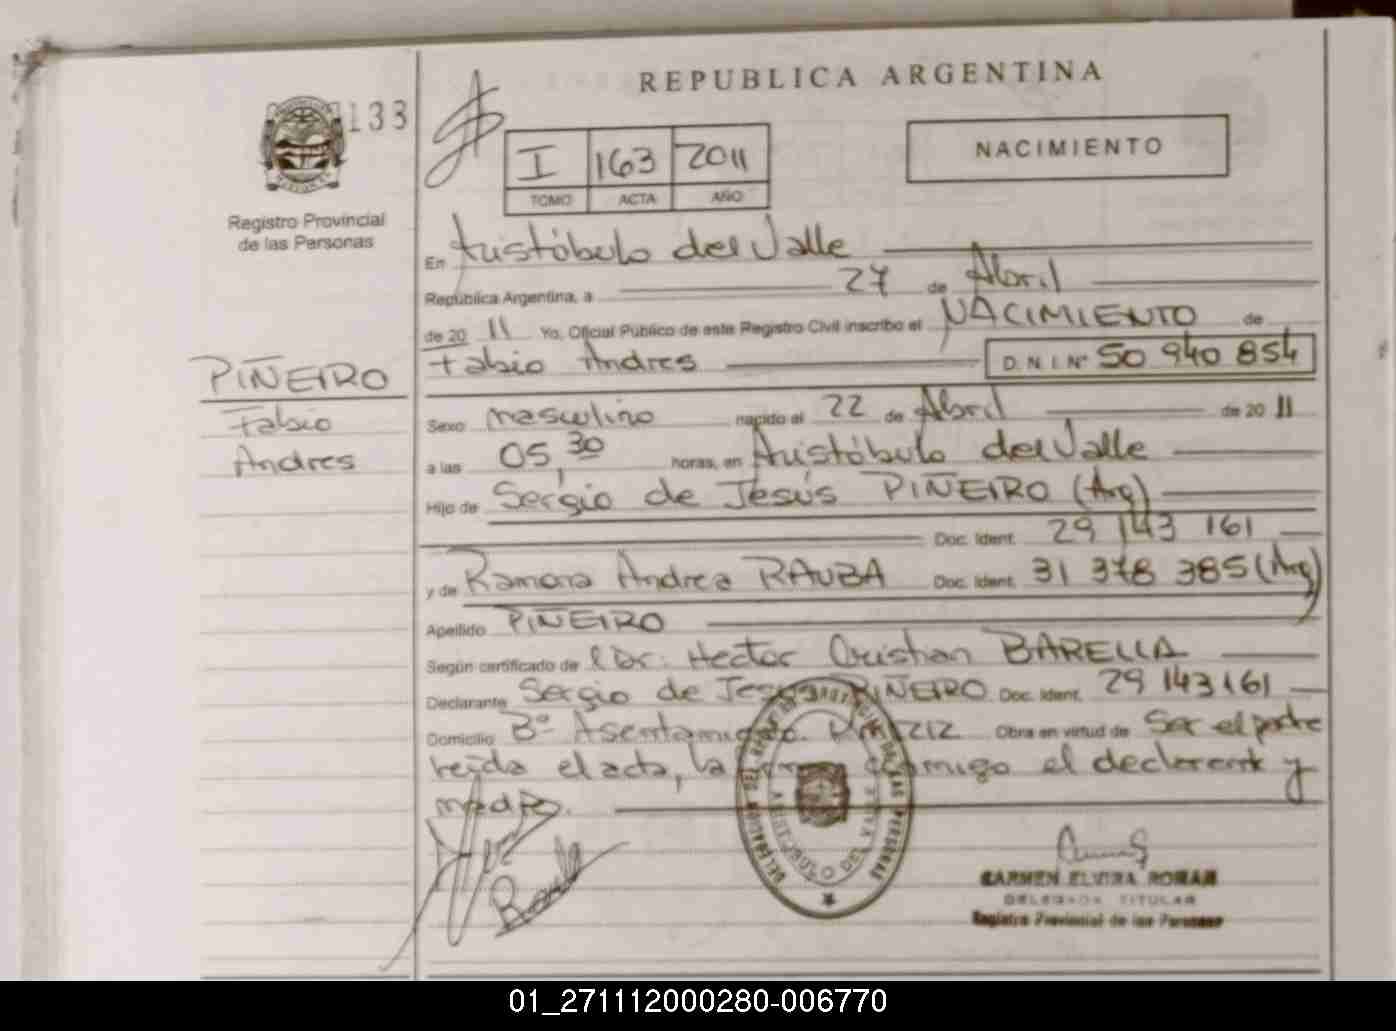 REPUBLICA ARGENTINA
133
I 163 2011
TOMO ACTA AÑO
NACIMIENTO
Registro Provincial
de las Personas
En Aristóbulo del Valle
República Argentina, a 27 de Abril
de 20 11 Yo, Oficial Público de este Registro Civil inscribo el NACIMIENTO de
Fabio Andres D.N.I. Nº 50 940 854
PIÑEIRO
Fabio
Andres
Sexo masculino nacido el 22 de Abril de 20 11
a las 05,30 horas, en Aristóbulo del Valle
Hijo de Sergio de Jesús PIÑEIRO (Arg)
Doc. Ident. 29 143 161
y de Ramona Andrea RAUBA Doc. Ident. 31 378 385 (Arg)
Apellido PIÑEIRO
Según certificado de Dr. Hector Cristian BARELLA
Declarante Sergio de Jesus PIÑEIRO Doc. Ident. 29 143 161
Domicilio Bº Asentamiento 212 Obra en virtud de Ser el padre
leída el acta, la conmigo el declarante y
madre.
DELEGACION DEL REGISTRO PROVINCIAL DE LAS PERSONAS
ARISTOBULO DEL VALLE
CARMEN ELVIRA ROMAN
DELEGADA TITULAR
Registro Provincial de las Personas
01_271112000280-006770